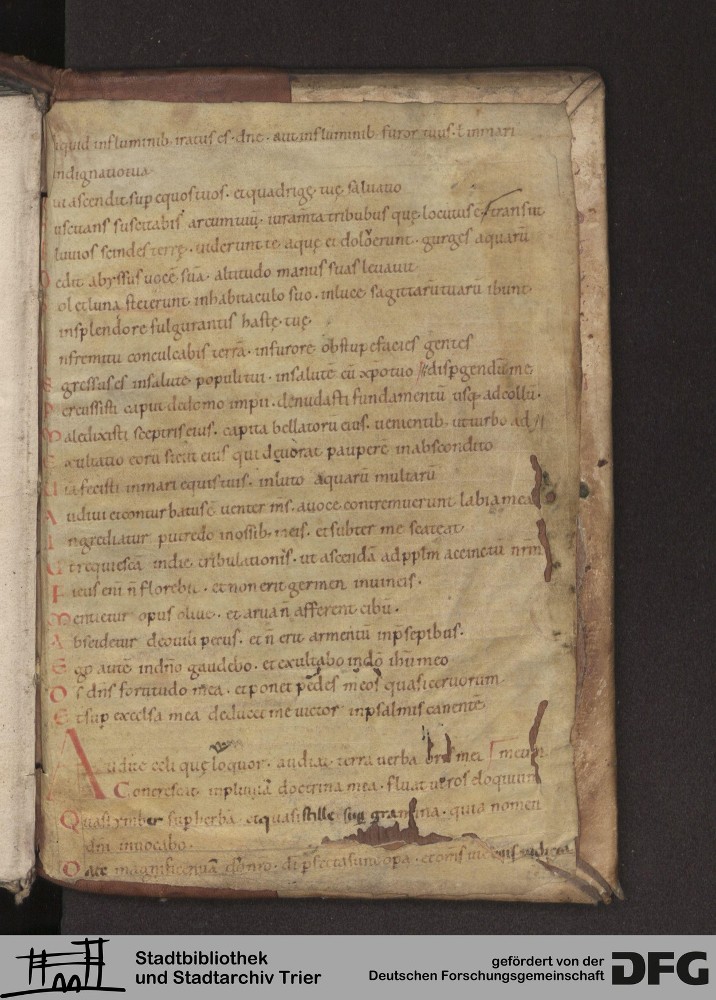 iquid influminib. iratus es. dne. aut influminib. furor tuus. ł inmari
indignatiotua.
ut ascendit sup equos tuos. et quadrigę tuę saluatio
uscitans suscitabis arcum tuū. iuram̄ta tribubus quę locutus es transiit
luuios scindes terrę. uiderunt te aquę et doluerunt. gurges aquarū
edit abyssus uocē sua. altitudo manus suas leuauit
ol et luna steterunt inhabitaculo suo. inluce sagittarū tuarū ibunt.
insplendore fulgurantis hastę tuę.
nfremitu conculcabis terrā. infurore obstupefacies gentes
gressus es insalute populi tui. insalutē cū xpo tuo
P ercussisti caput dedomo impii. denudasti fundamentū usq. ad collū.
M aledixisti sceptris eius. capita bellatorū eius. uenientib. ut turbo ad
E xultatio eorū sicut eius qui deuorat pauperē inabscondito
U ia fecisti inmari equis tuis. inluto aquarū multarū
A udiui et conturbatus ē uenter ms̄. auoce contremuerunt labia mea
I ngrediatur putredo inossib. meis. et subter me scateat.
U t requiescā indie tribulationis. ut ascendā ad pplm accinctū nrm̄
F icus eni n̄ florebit. et non erit germen inuineis.
M entietur opus oliuę. et arua n̄ afferent cibū.
A bscidetur deouili pecus. et n̄ erit armentū inp̄sepibus.
E go autē indn̄o gaudebo. et exultabo indō ihū meo
D s̄ dn̄s fortitudo mea. et ponet pedes meos quasi ceruorum.
E t sup excelsa mea deducet me uictor inpsalmis canentē
A udite celi quę loquor. audiat terra uerba oris mei
C oncrescat inpluuiā doctrina mea. fluat ut ros eloquium
Q uasi ymber sup herbā. et quasi stille sup gramina. quia nomen
dn̄i inuocabo.
D ate magnificentiā dō nro. di pfecta sunt opa. et oms uię eius iudicia
Stadtbibliothek
und Stadtarchiv Trier
gefördert von der
Deutschen Forschungsgemeinschaft
DFG